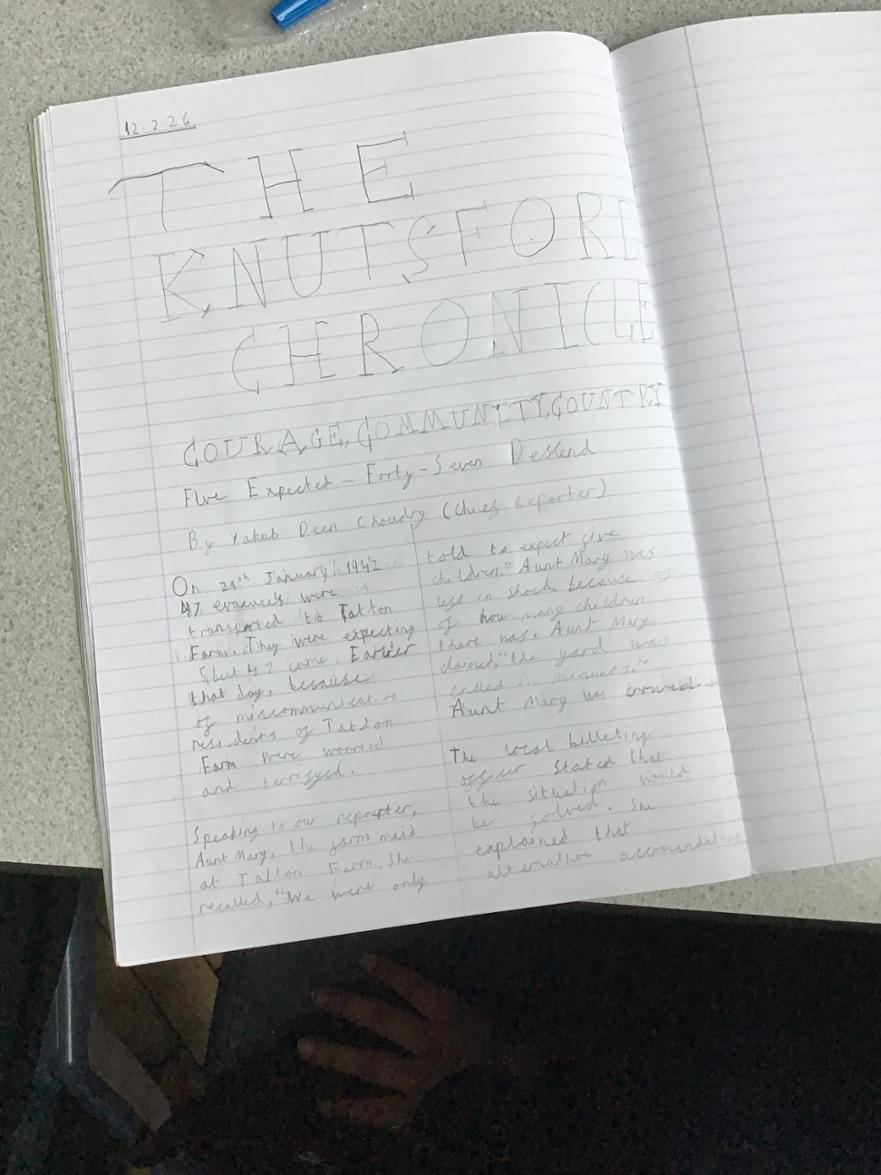 12.2.26
THE
KNUTSFORD
CHRONICLE
COURAGE, COMMUNITY, COUNTRY
Five Expected - Forty-Seven Descend
By Yakub Deen Choudry (Chief Reporter)
On 21th January, 1942
47 evacuees were
transported to Tatton
Farm. They were expecting
5 but 47 came. Earlier
that day, because
of miscommunication
residents of Tatton
Farm were worried
and terrifyed.
Speaking to our repourter,
Aunt Mary, the farm maid
at Tatton Farm. She
recalled, "We were only
told to expect five
children." Aunt Mary was
left in shock because of
of how many children
there was. Aunt Mary
"the yard was
in
Aunt Mary was
The local billeting
officer stated that
the situation would
be solved. She
explained that
alternative accomandation